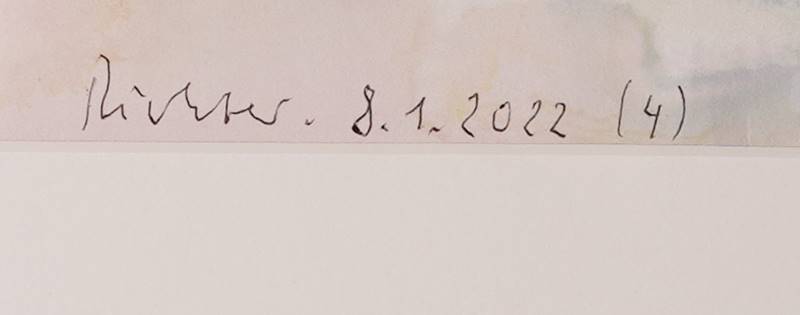 Richter. 8.1.2022 (4)